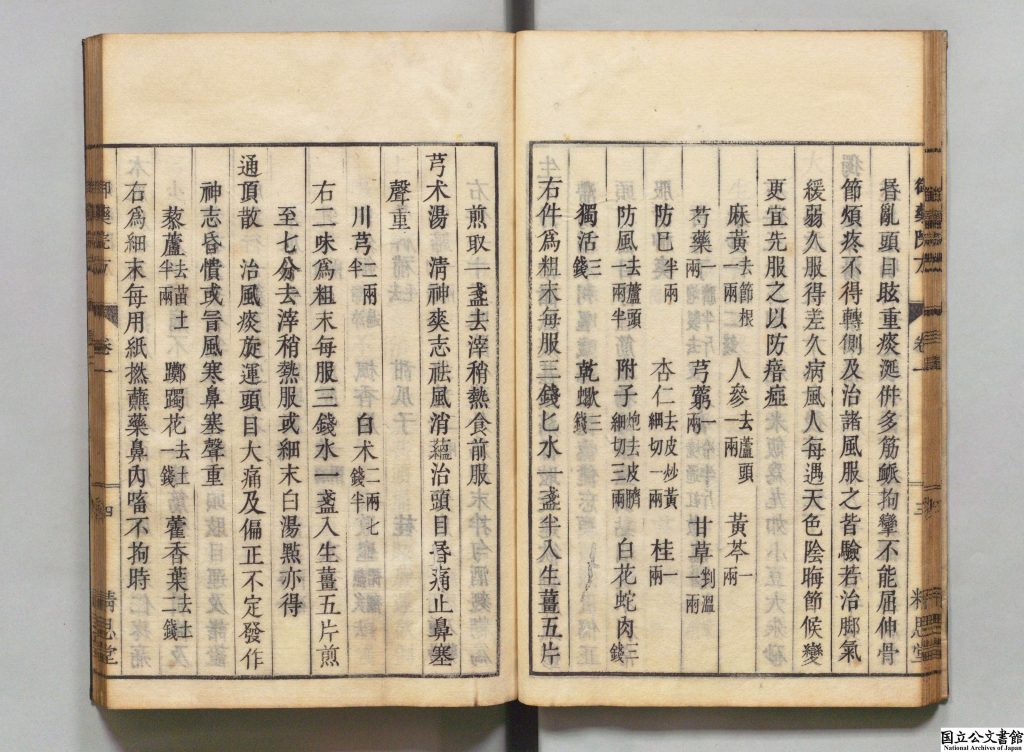 昬亂頭目眩重痰涎併多筋䐴拘攣不能屈伸骨
節煩疼不得轉側及治諸風服之皆驗若治脚氣
緩弱久服得差久病風人每遇天色陰晦節候變
更宜先服之以防瘖瘂
麻黃去節根一兩 人參去蘆頭一兩 黃芩一兩
芍藥一兩 芎藭一兩 甘草剉一兩
防巳半兩 杏仁去皮炒黃細切一兩 桂一兩
防風去蘆頭一兩半 附子炮去皮臍細切三兩 白花蛇肉三錢
獨活三錢 乾蠍三錢
右件爲粗末每服三錢匕水一盞半入生薑五片
御藥院方 卷一 三 精思堂
右煎取一盞去滓稍熱食前服
芎朮湯 清神爽志祛風消蘊治頭目昬痛止鼻塞
聲重
川芎二兩半 白朮二兩七錢半
右二味爲粗末每服三錢水一盞入生薑五片煎
至七分去滓稍熱服或細末白湯㸃亦得
通頂散 治風痰旋運頭目大痛及偏正不定發作
神志昬憒或冐風寒鼻塞聲重
藜蘆去苗土半兩 躑躅花去土一錢 藿香葉去土二錢
右爲細末每用紙撚蘸藥鼻內㗜不拘時
御藥院方 卷一 四 精思堂
国立公文書館
National Archives of Japan